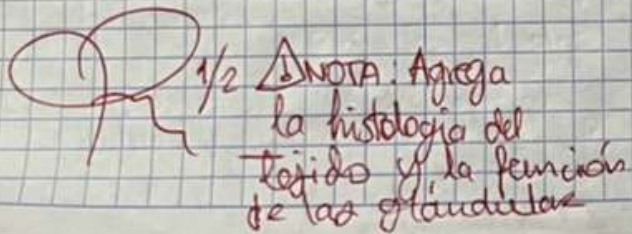 1/2 ⚠NOTA: Agrega
la histologia del
tejido y la función
de las glándulas